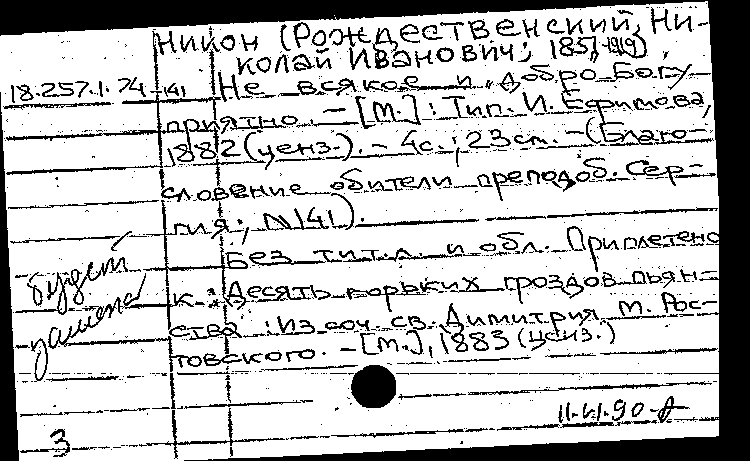 Никон (Рождественский, Ни-
колай Иванович; 1851-1919).
18.257.1.74-141 Не всякое и добро Богу
приятно. - [М.]: Тип. И. Ефимова,
1882 (ценз.). - 4с.; 23см. - (Благо-
словение обители преподоб. Сер-
гия; N141).
Без тит.л. и обл. Приплетено
к.: Десять горьких гроздов пьян-
ства: Из соч. св. Димитрия М. Рос-
товского. - [М.], 1883 (ценз.)
будет
замена
3